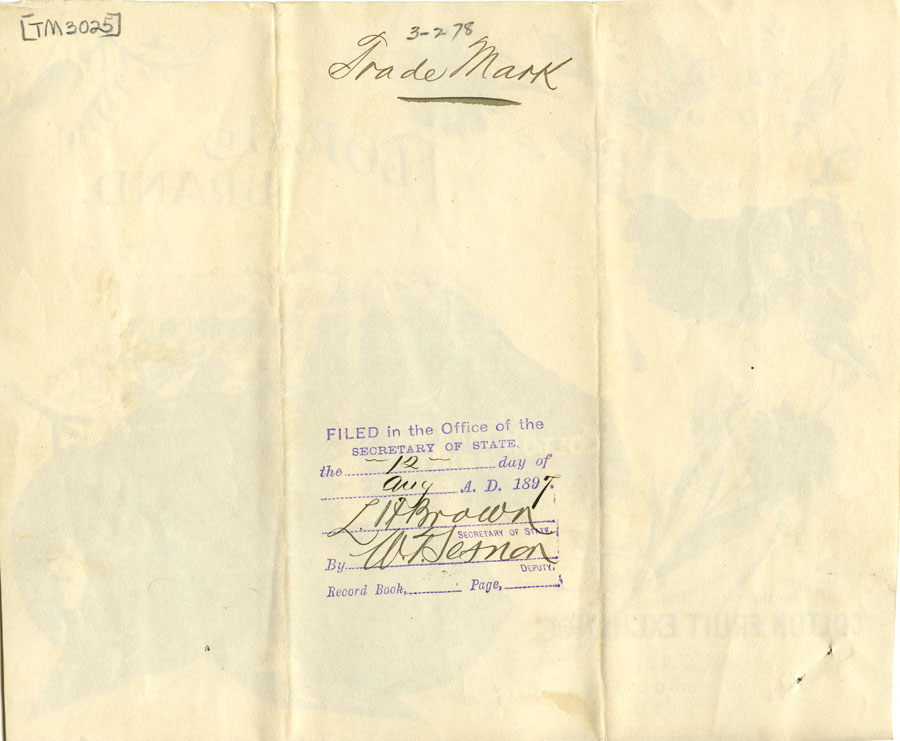 [TM3025]
3-2 78
Trade Mark
FILED in the Office of the
SECRETARY OF STATE.
the 12 day of
Aug A. D. 1897.
L. H. Brown
SECRETARY OF STATE.
By W. T. Sesnon
DEPUTY.
Record Book, Page,
BRAND.
COLTON FRUIT EXCHANGE